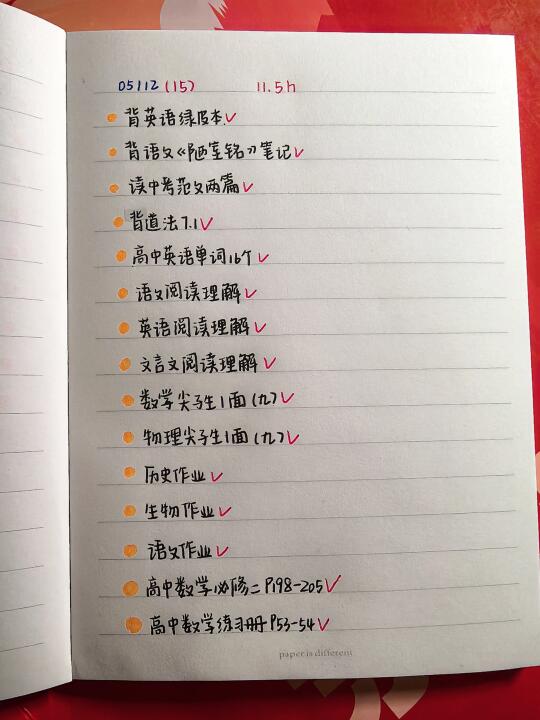 05112 (15) 11.5h
背英语绿皮本✓
背语文《陋室铭》笔记✓
读中考范文两篇✓
背道法7.1✓
高中英语单词16个✓
语文阅读理解✓
英语阅读理解✓
文言文阅读理解✓
数学尖子生1面(九)✓
物理尖子生1面(九)✓
历史作业✓
生物作业✓
语文作业✓
高中数学必修二P198-205✓
高中数学练习册P53-54✓
paper is different